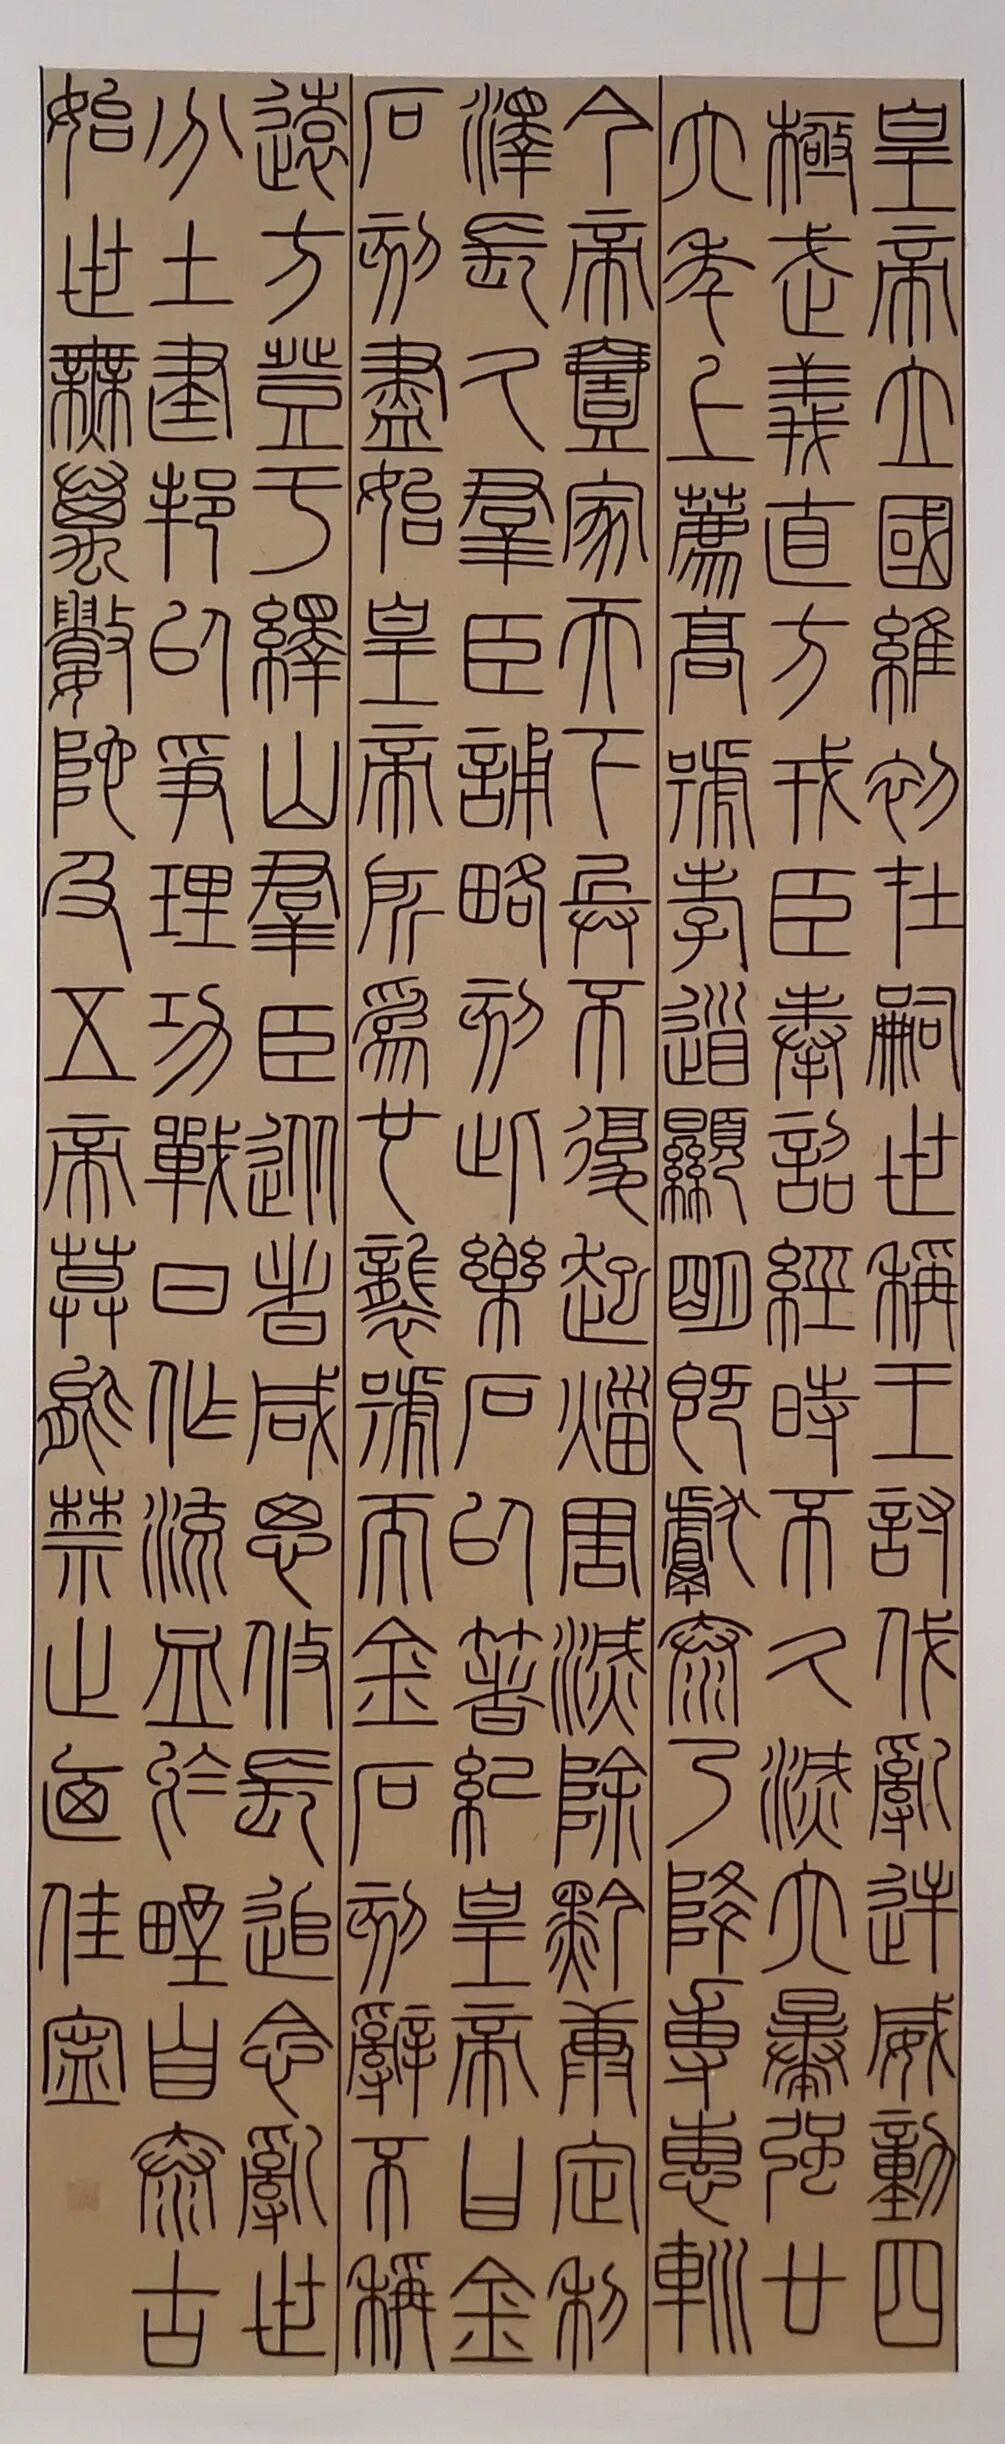 皇帝立國維初在嗣世稱王討伐亂逆威動四
極武義直方戎臣奉詔經時不久滅六暴強廿
六年上薦高號孝道顯明既獻泰乃降專惠䡅
今帝壹家天下兵不復起災害滅除黔康定利
澤長久群臣誦略刻此樂石以著紀皇帝曰金
石刻盡始皇帝所為廿襲號而金石刻辭不稱
遠方登于繹山群臣從者咸思攸長追念亂世
分土建邦以爭理功戰日作流血於野自泰古
始世無萬數陀及五帝莫能禁止廼佳